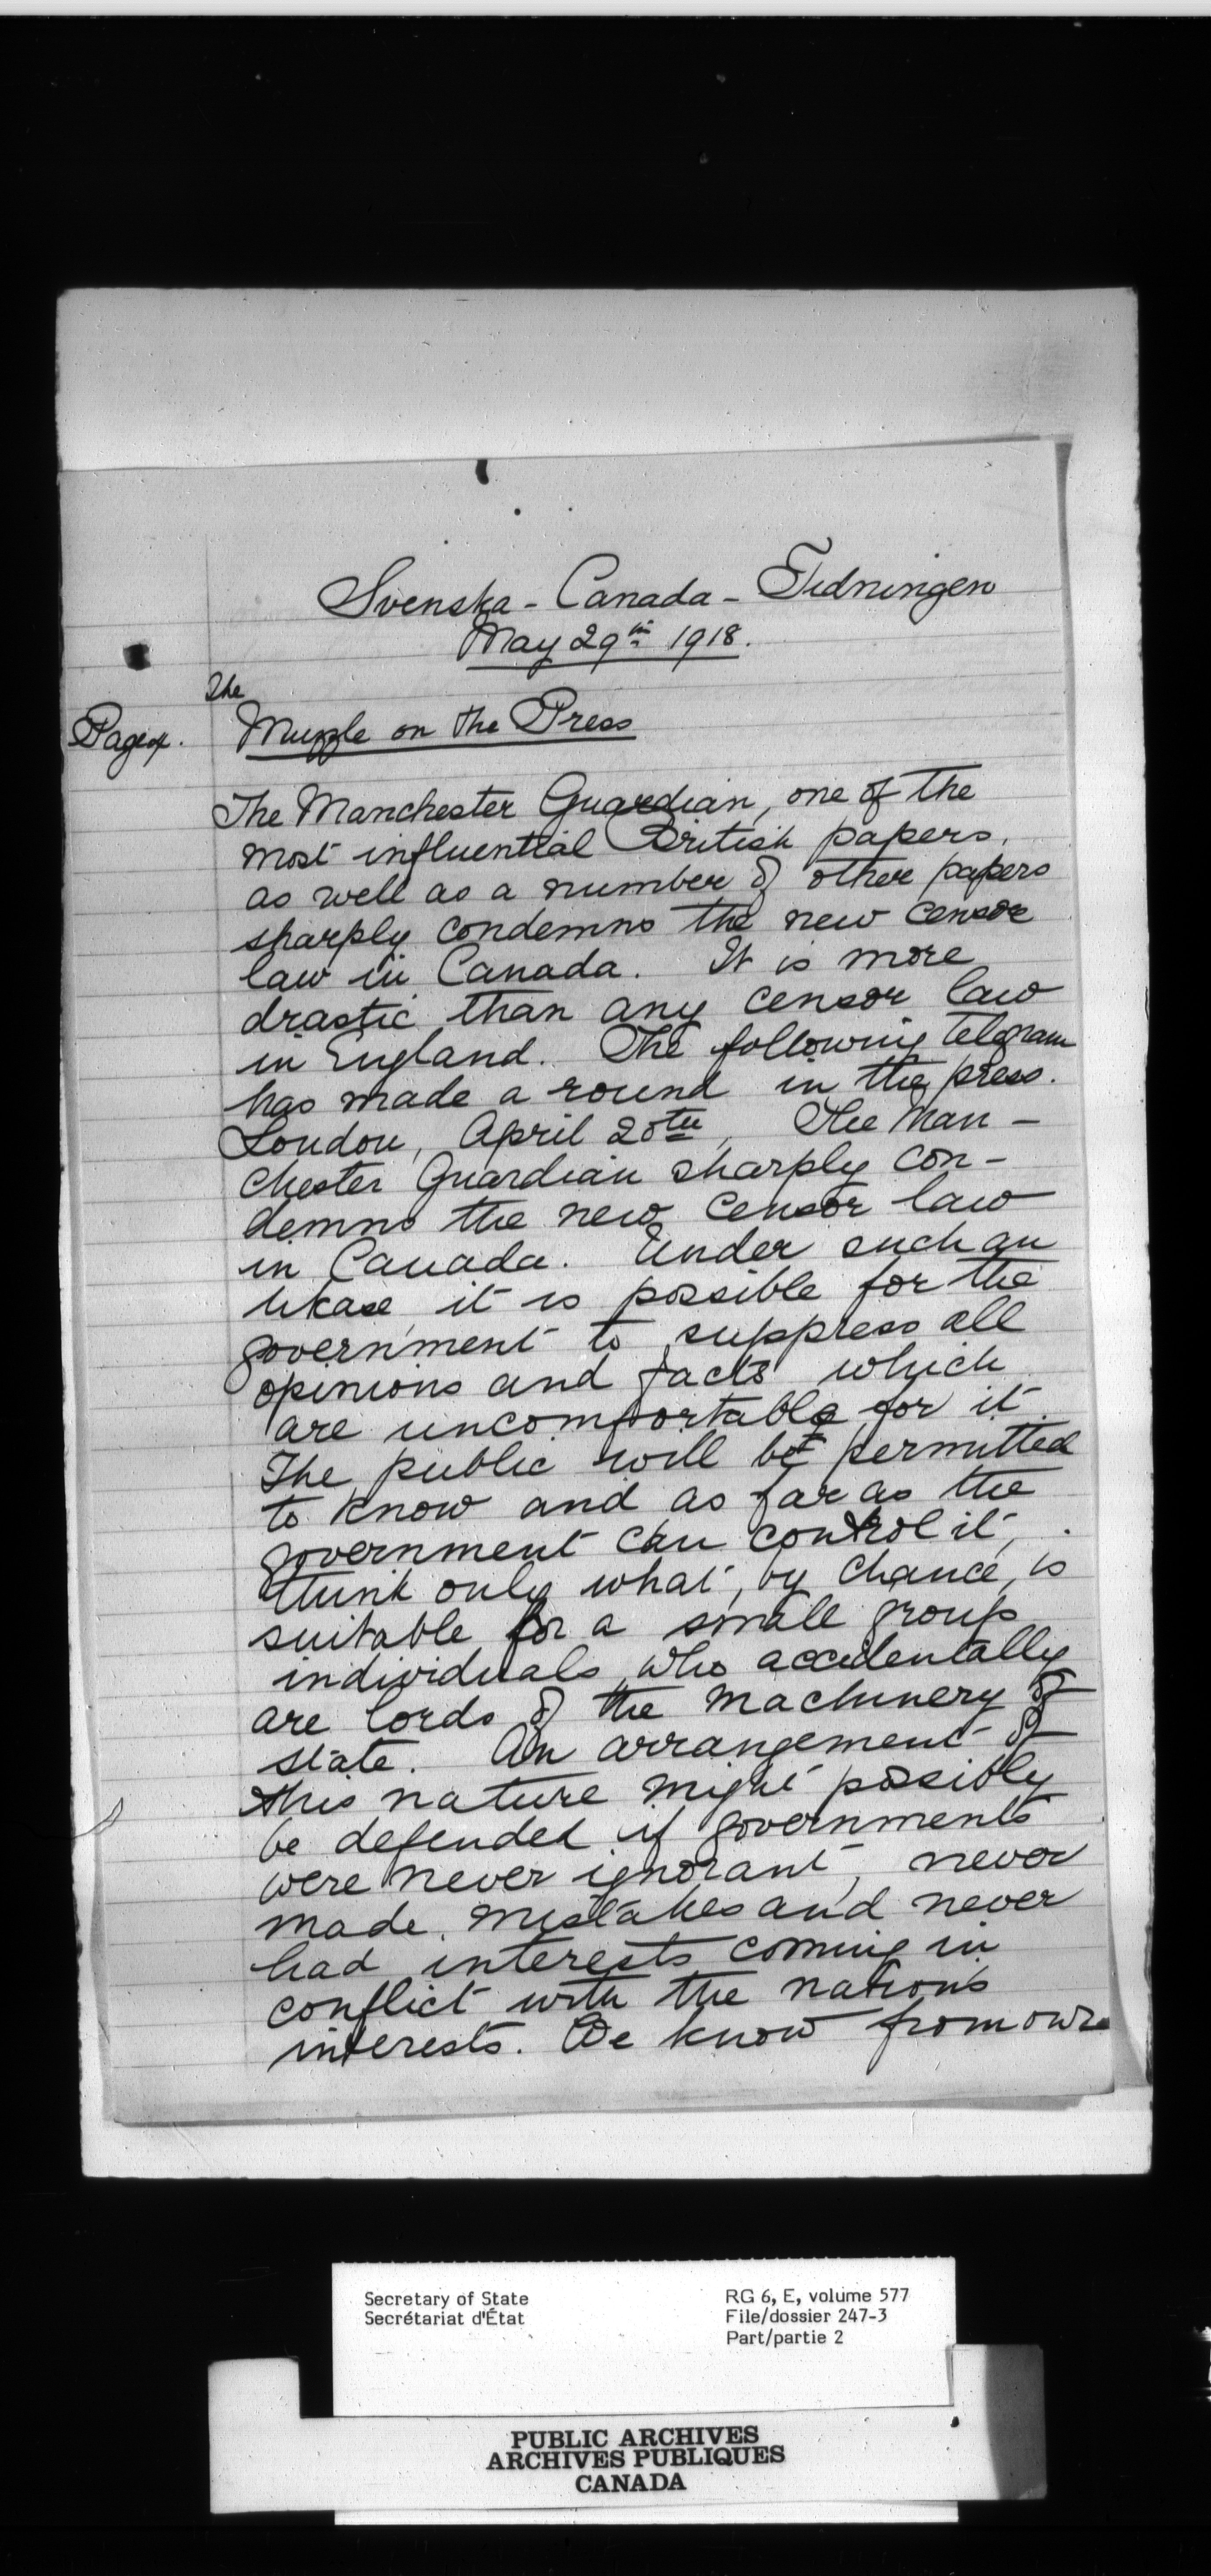 Svenska - Canada - Tidningen
May 29th 1918.
The
Page 4. Muzzle on the Press
The Manchester Guardian, one of the
most influential British papers,
as well as a number of other papers
sharply condemns the new censor
law in Canada. It is more
drastic than any censor law
in England. The following telgram
has made a round in the press.
London, April 20th, The Man-
chester Guardian sharply con-
demns the new censor law
in Canada. Under such an
ukase it is possible for the
government to suppress all
opinions and facts which
are uncomfortable for it.
The public will be permitted
to know and as far as the
government can control it,
think only what, by chance, is
suitable for a small group
individuals, who accidentally
are lords of the machinery of
state. An arrangement of
this nature might possibly
be defended if governments
were never ignorant, never
made mistakes and never
had interests coming in
conflict with the nation's
interests. We know from our
Secretary of State
Secrétariat d'État
RG 6, E, volume 577
File/dossier 247-3
Part/partie 2
PUBLIC ARCHIVES
ARCHIVES PUBLIQUES
CANADA